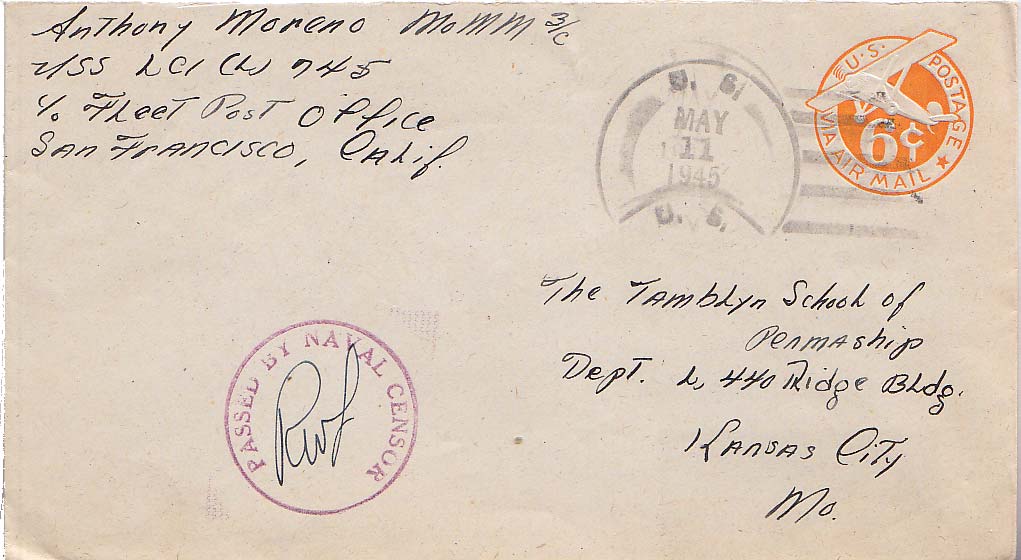 Anthony Moreno MoMM 3/c
USS LCI (L) 745
℅ Fleet Post Office
San Francisco, Calif.
U. S.
MAY
11
1945
U. S.
U.S. POSTAGE
6¢
VIA AIR MAIL
The Tamblyn School of
Penmaship
Dept. L, 440 Ridge Bldg.
Kansas City
Mo.
PASSED BY NAVAL CENSOR